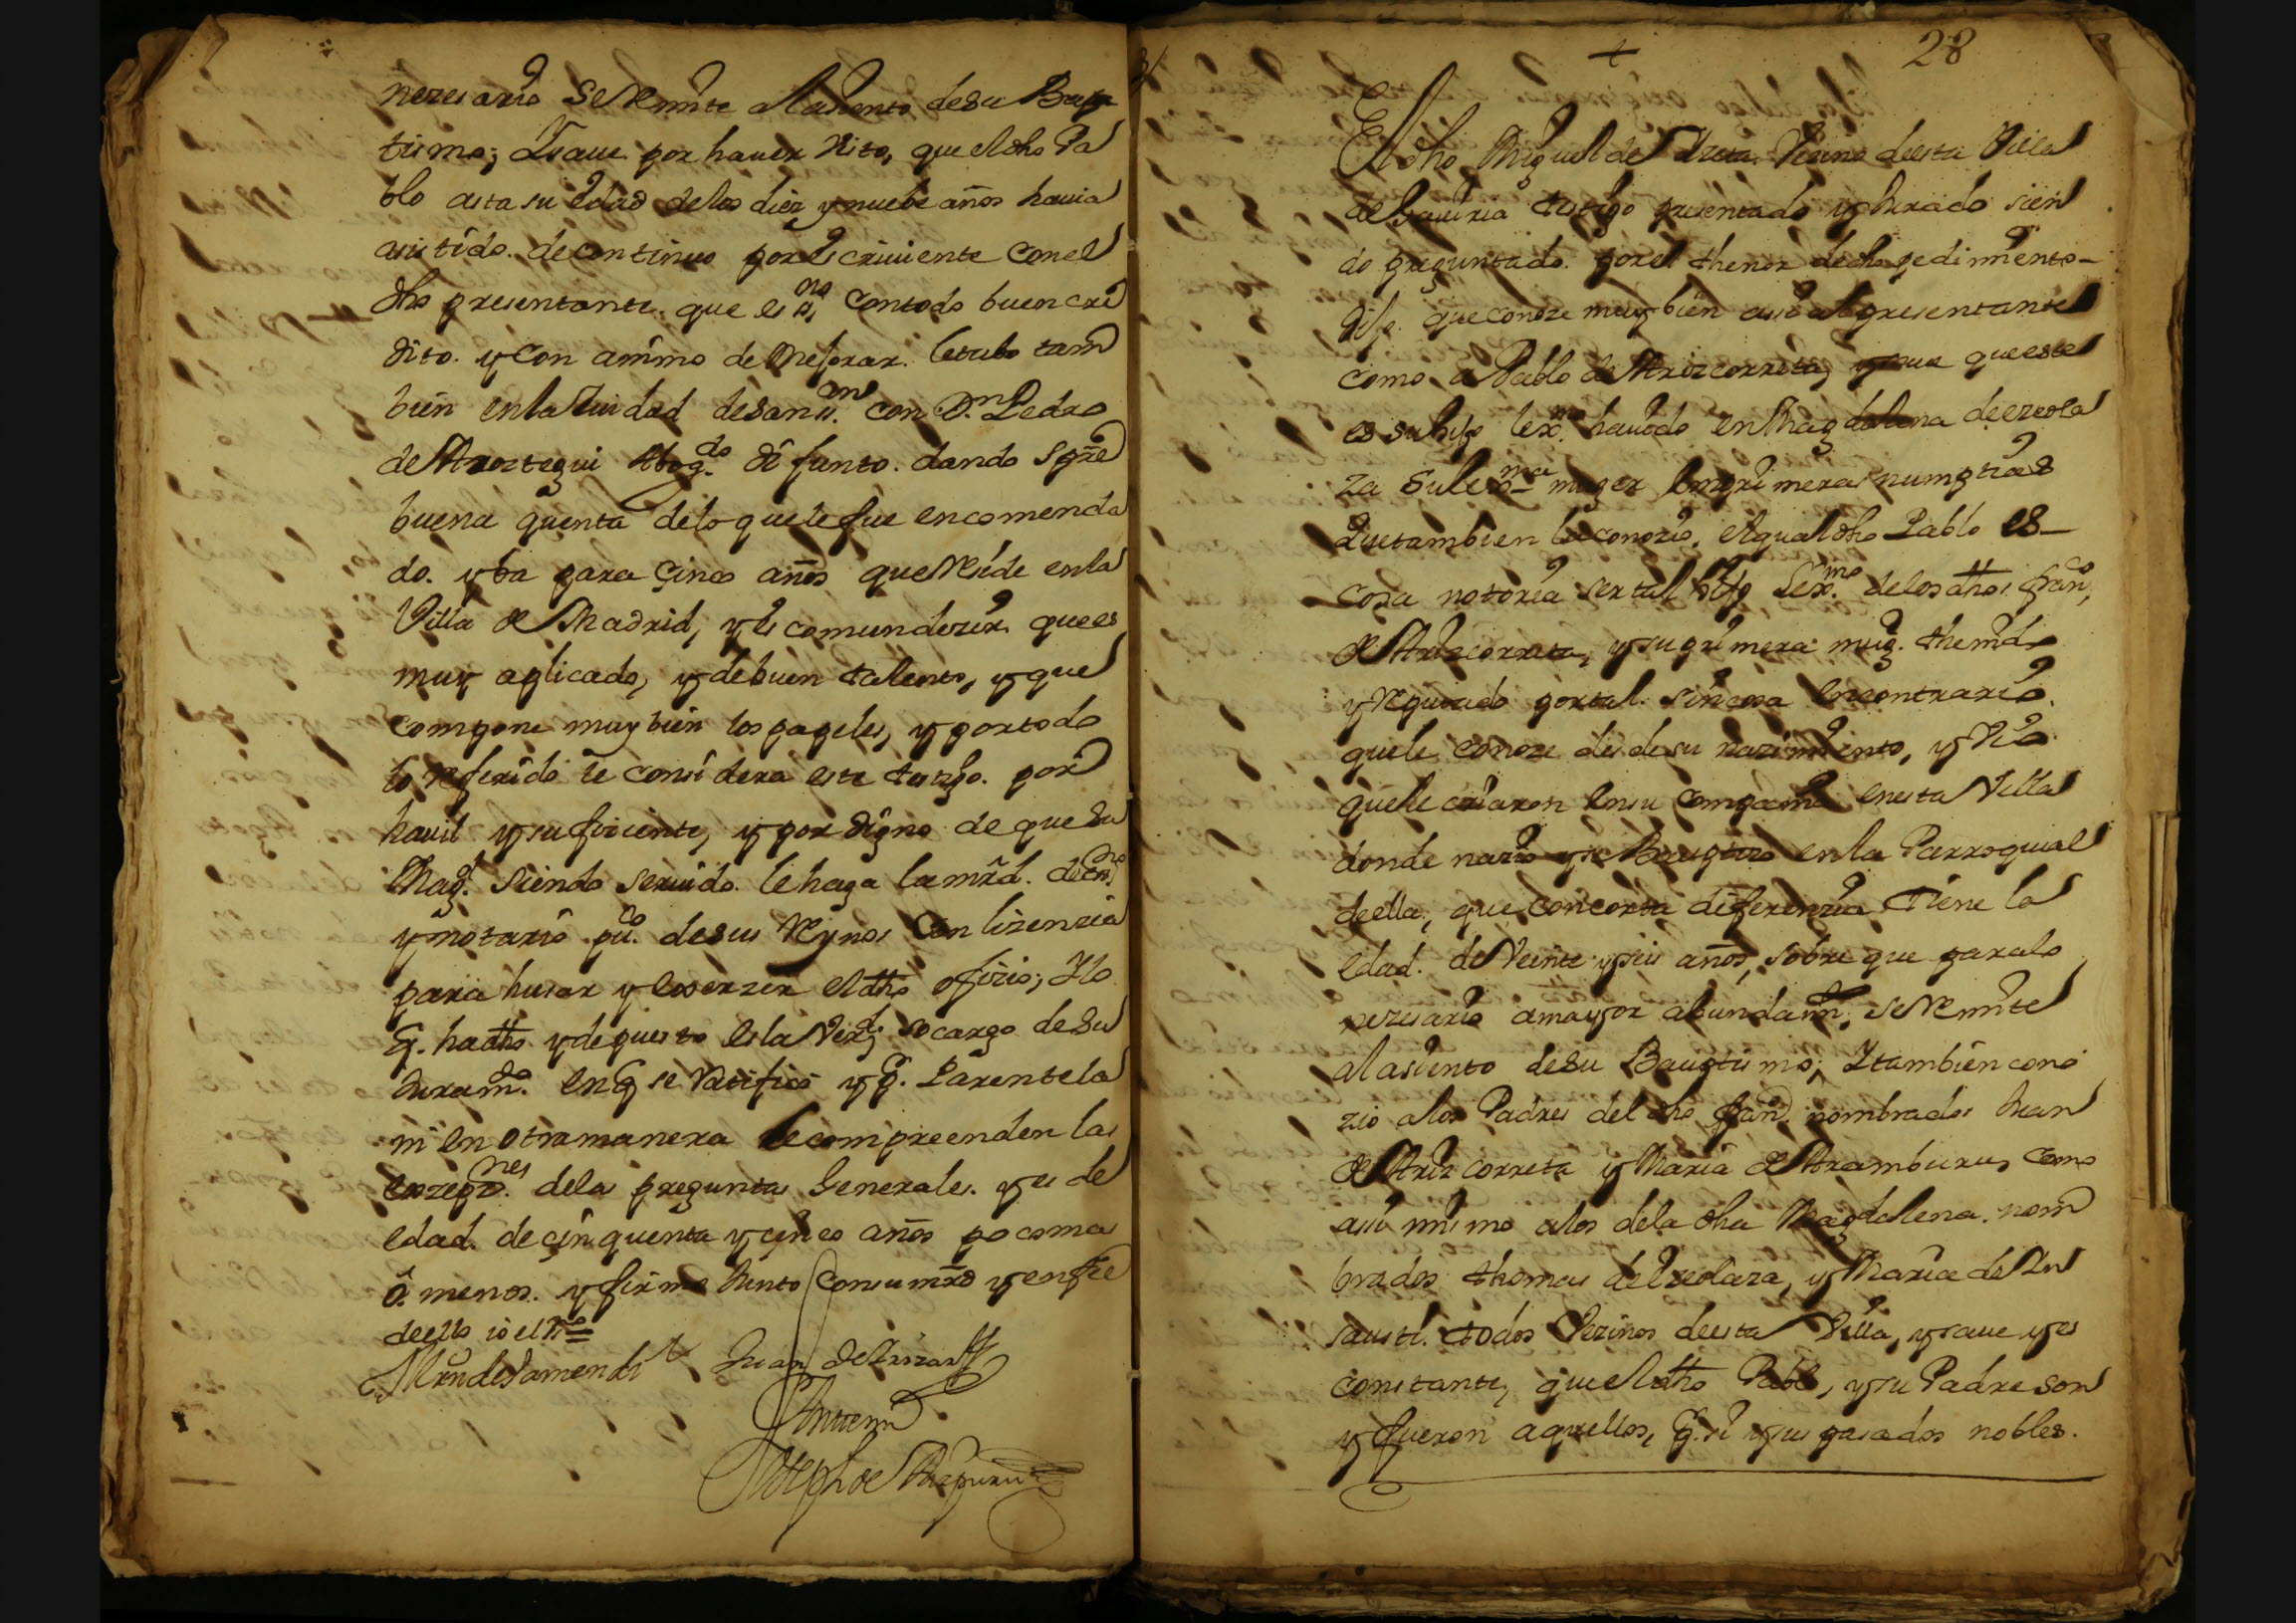 nezesario se Remite al asiento de su Bap
tismo; I saue por hauer Visto, que el dho Pa
blo asta su edad de los diez y nuebe años hauia
asistido de continuo por escriuiente con el
dho presentante que es no, con todo buen cre
dito. y con animo de mejorar. le tubo tam
bien en la Ziudad de san con D.n Pedro
de Aroztegui Abog.do difunto. dando spre
buena quenta de lo que le fue encomenda
do. y ba para çinco años que Reside en la
Villa de Madrid, y es comun dezir que es
muy aplicado, y de buen talento, y que
compone muy bien los papeles, y por todo
lo Referido le considera este testigo. por
hauil y sufiziente, y por digno de que su
Mag.d siendo seruido. le haga la mrd. de
y notario pu.co de sus Reynos con lizencia
para husar y exerzer el dho ofizio; Y lo
q. ha dho y de puesto es la Verd. so cargo de su
Juram.to en q se Ratifico y q. Parentela
ni en otra manera le compreenden las
exzepz.nes de las preguntas Generales. y es de
edad. de çinquenta y cinco años poco mas
ô. menos. y firmo Junto con su mrd y en fee
de ello io el
Juan de
Ante mi
Joseph de
28
El dho Miguel de Vreta. Vezino de esta Villa
de testigo presentado y Jurado sien
do preguntado. por el thenor de dho pedimento
dijo que conoze muy bien asi al presentante
como a Pablo de Arizcorreta, y saue que este
es su hijo lex.mo hauido en Magdalena de ezeola
za su lex.ma muger en primeras numptias
Que tambien la conozio, el qual dho Pablo es
cosa notoria ser tal hijo Lex.mo de los dhos fran.co
de Arizcorreta, y su primera mug. thenido
y Reputado por tal. sin cosa en contrario.
que le conoze desde su nazimiento, y Vio
que le criaron en su compañia en esta Villa
donde nazio y se Baugtizo en la Parroquial
de ella; que con corta diferenzia tiene la
edad. de Veinte y seis años, sobre que para lo
nezesario a mayor abundam.to se Remite
al asiento de su Baugtismo; I tambien cono
zio a los Padres del dho fran.co nombrados Juan
de Arizcorreta y Maria de Aramburu, como
asi mismo a los de la dha Magdalena. nom
brados thomas de Ezeolaza, y Maria de In
sausti. todos Vezinos de esta Villa, y saue y es
constante, que el dho Pablo, y su Padre son
y fueron aquellos, q. si y sus pasados nobles.